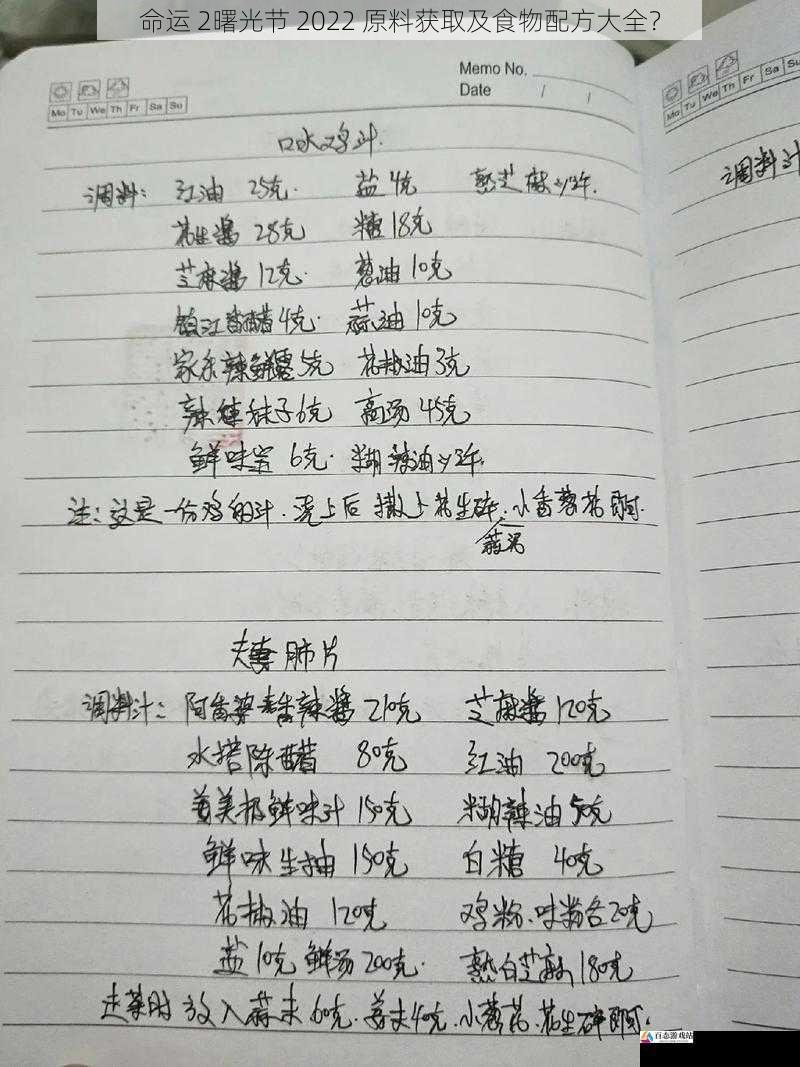 命运 2曙光节 2022 原料获取及食物配方大全？
Memo No.
Date / /
Mo Tu We Th Fr Sa Su
Mo Tu We Th Fr Sa Su
口水鸡汁
调料: 红油 25克. 盐 4克 熟芝麻少许.
花生酱 28克 糖 18克
芝麻酱 12克. 葱油 10克
镇江香醋 4克. 蒜油 10克
家乐辣鲜露 5克 花椒油 3克
辣 子 6克 高汤 45克
鲜味宝 6克. 糊辣油少许.
注: 这是一份鸡的汁. 浇上后 撒上花生碎. 小香葱花即可.
蒜泥
夫妻肺片
调料汁: 阿香婆香辣酱 210克 芝麻酱 120克
水塔陈醋 80克 红油 200克
美极鲜味汁 150克 糊辣油 50克
鲜味生抽 150克 白糖 40克
花椒油 120克 鸡粉、味粉各20克
盐 10克 鲜汤 200克. 熟白芝麻 180克
走菜时 放入蒜末 60克. 姜末 40克. 小葱花、花生碎即可.
调料汁
百态游戏站